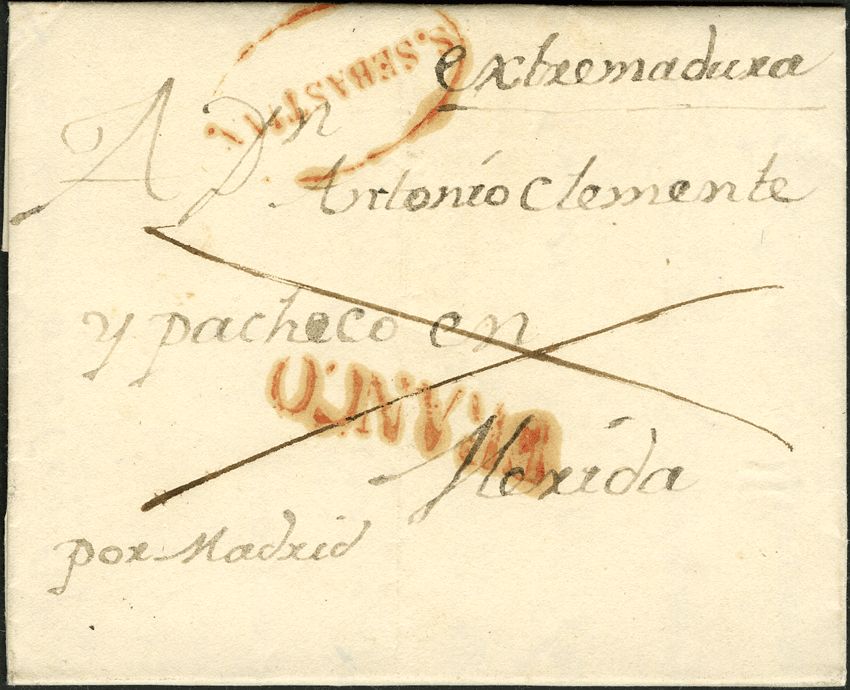 extremadura
S. SEBASTIAN.
A Dn
Antonio Clemente
y pacheco en
FRANCO
Merida
por Madrid